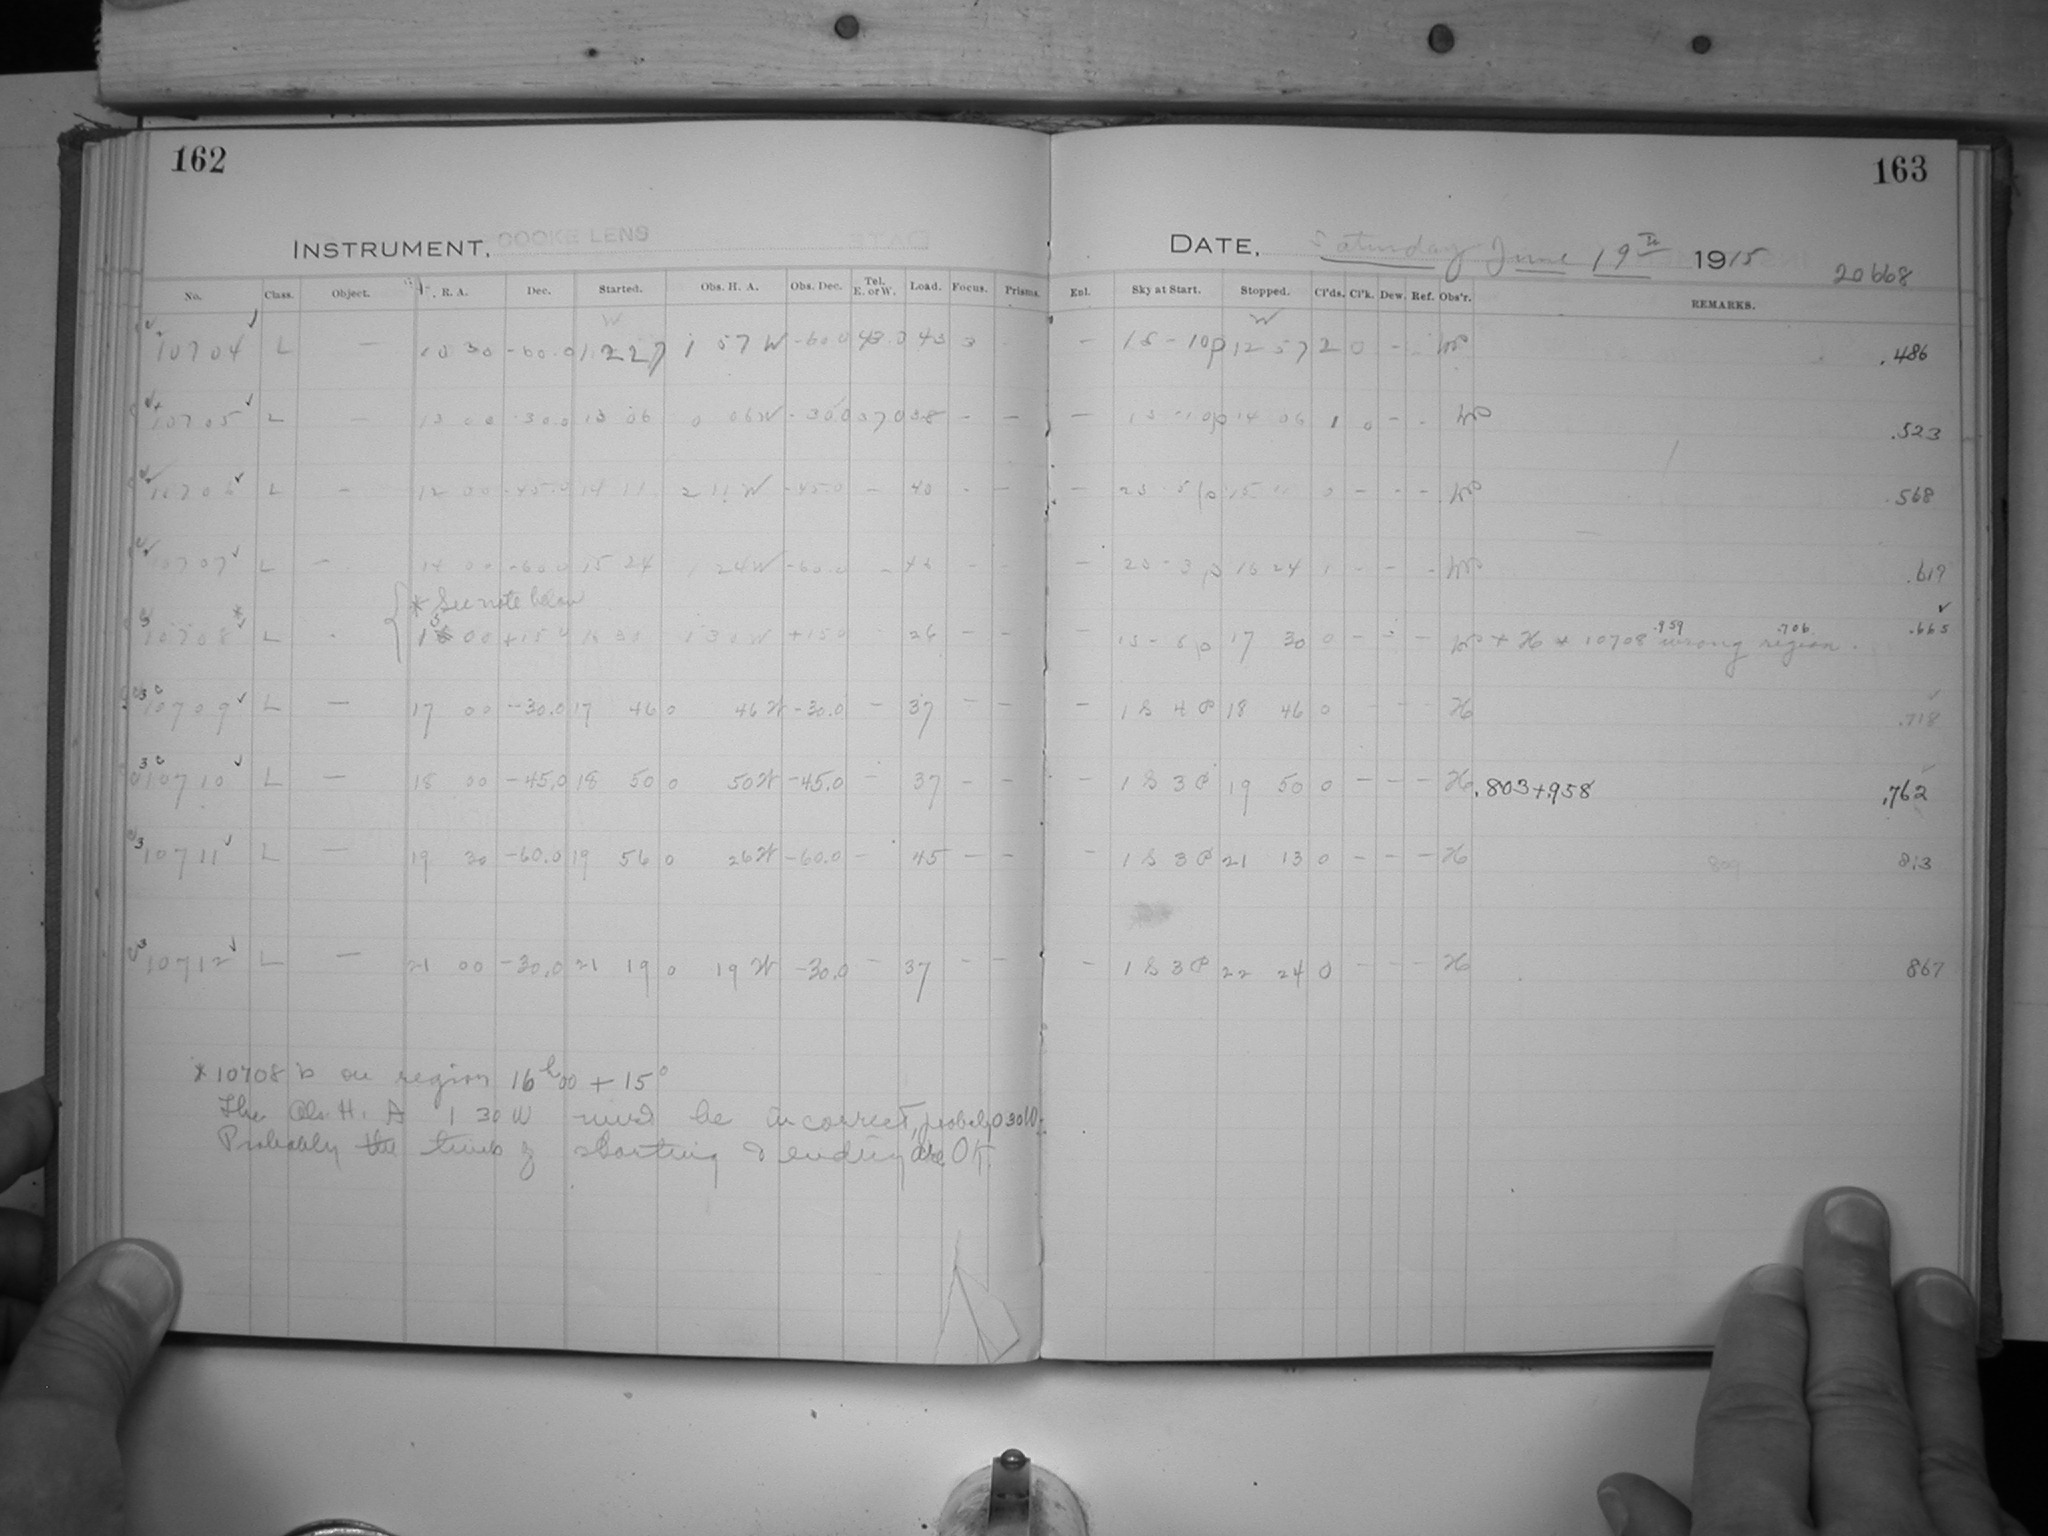 162
163
INSTRUMENT, COOKE LENS
DATE, Saturday June 19th 1915
20668
No. Class. Object. R. A. Dec. Started. Obs. H. A. Obs. Dec. Tel. E. or W. Load. Focus. Prisms.
Exl. Sky at Start. Stopped. Cl'ds. Cl'k. Dew. Ref. Obs'r. REMARKS.
10704 L — 10 30 -60.0 1 57 W -60.0 43 3
— 1S-10p 12 57 2 0 - - .486
10705 L — 13 00 -30.0 13 06 0 06W -30.0 38 - —
— 1S-10p 14 06 1 0 - - .523
10706 L - 12 00 -45.0 14 11 2 11 W -45.0 - 40 - —
— 2S-5p 15 11 0 - - - .568
10707 L - 14 00 -60.0 15 24 1 24W -60.0 - - -
— 2S-3p 16 24 1 - - - .617
* See note below
10708 * L 00 +15.0 16 30 1 30 W +15.0 26 - -
1S-6p 17 30 0 - - - + H * 10708 wrong region. .959 .706 .665
10709 L — 17 00 -30.0 17 46 0 46 W -30.0 - 37 - —
- 1 S 4 P 18 46 0 - - - H .718
10710 L — 18 00 -45.0 18 50 0 50W -45.0 - 37 - -
- 1 S 3 P 19 50 0 - - - H .803+.958 .762
10711 L — 19 30 -60.0 19 56 0 26W -60.0 - 45 - -
- 1 S 3 P 21 13 0 - - - H 809 813
10712 L — 21 00 -30.0 21 19 0 19 W -30.0 - 37 - -
- 1 S 3 P 22 24 0 - - - H 867
*10708 is on region 16h00 + 15°
The Obs. H. A 1 30 W must be incorrect, probably 0 30W.
Probably the times of starting & ending are OK.